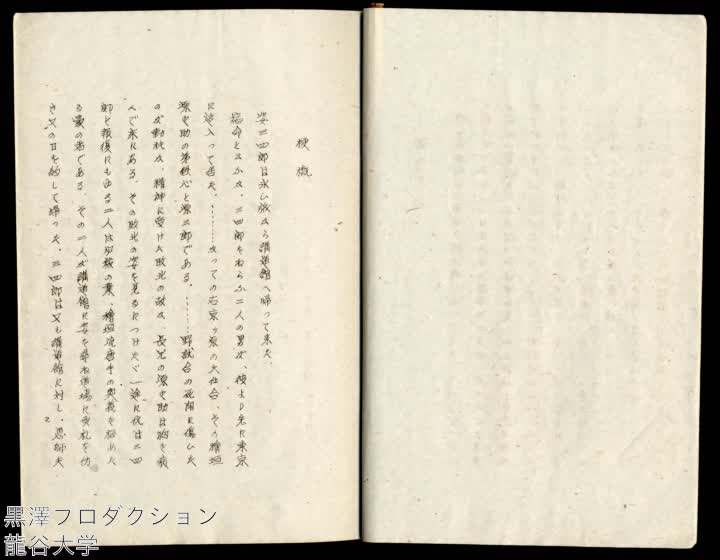 梗概
姿三四郎は永い旅から講道館へ帰って来た。
宿命と云うか、三四郎をねらう二人の男が、彼より先に東京
に這入って居た。………かっての右京ヶ原の大仕合、その檜垣
源之助の弟鉄心と源三郎である。……野試合の死闘に傷いた
のが動機か、精神に受けた敗北の故か、長兄の源之助は胸を病
んで床にある。その敗北の姿を見るにつけたゞ一途に仇は三四
郎と報復にもゆる二人は
檜垣流唐手の奥義を極めた
る豪の者である。その二人が講道館に姿を尋ね道場に
き又の日を約して帰った。三四郎は又も講道館に対し、恩師矢
2
黒澤プロダクション
龍谷大学